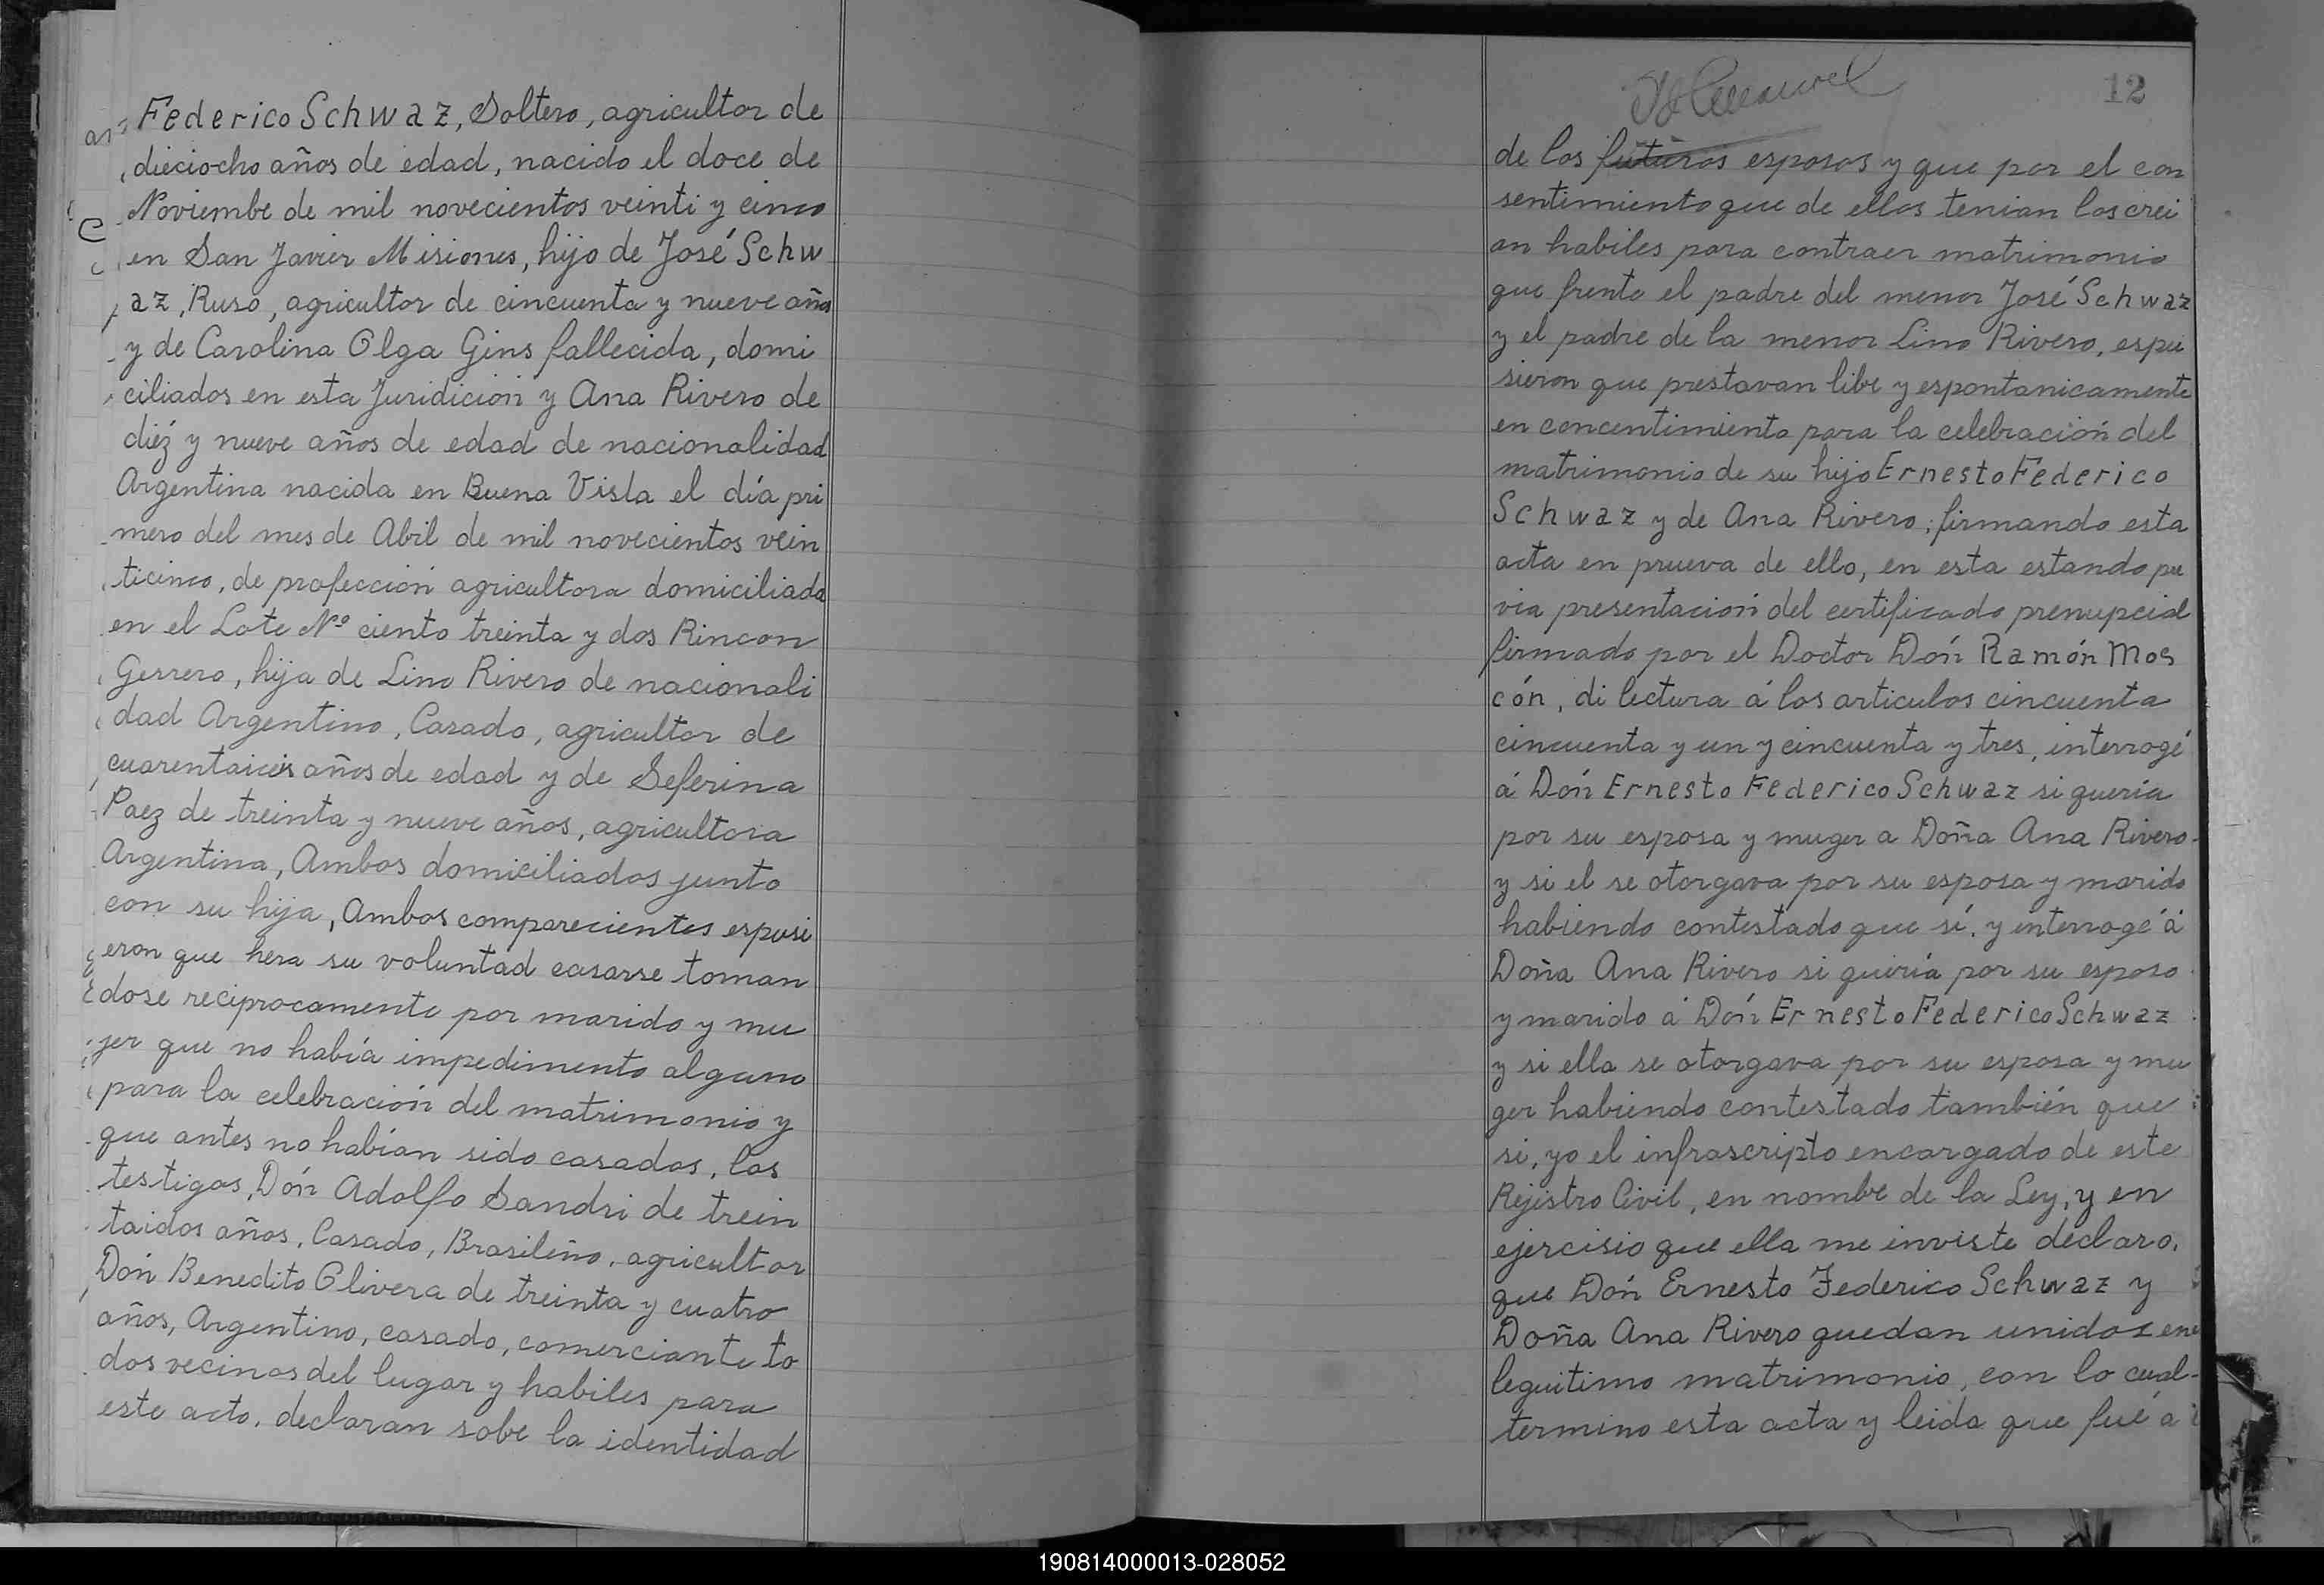 Federico Schwaz, Soltero, agricultor de
dieciocho años de edad, nacido el doce de
Noviembe de mil novecientos veinti y cinco
en San Javier Misiones, hijo de José Schw
az, Ruso, agricultor de cincuenta y nueve años
y de Carolina Olga Gins fallecida, domi
ciliados en esta Juridicion y Ana Rivero de
diéz y nueve años de edad de nacionalidad
Argentina nacida en Buena Visla el día pri
mero del mes de Abil de mil novecientos vein
ticinco, de profección agricultora domiciliada
en el Lote Nº ciento treinta y dos Rincon
Gerrero, hija de Lino Rivero de nacionali
dad Argentino, Casado, agricultor de
años de edad y de Seferina
Paez de treinta y nueve años, agricultora
Argentina, Ambos domiciliados junto
con su hija, Ambos comparecientes espusi
eron que hera su voluntad casarse toman
dose reciprocamente por marido y mu
jer que no había impedimento alguno
para la celebración del matrimonio y
que antes no habían sido casados, los
testigos, Dón Adolfo Sandri de trein
taidos años, Casado, Brasileño, agricultor
Dón Benedito Olivera de treinta y cuatro
años, Argentino, casado, comerciante to
dos vecinos del lugar y habiles para
este acto, declaran sobe la identidad
12
de los futuros esposos y que por el con
sentimiento que de ellos tenian los crei
an habiles para contraer matrimonio
que frente el padre del menor José Schwaz
y el padre de la menor Lino Rivero, espu
sieron que prestavan libe y espontanicamente
en concentimiento para la celebración del
matrimonio de su hijo Ernesto Federico
Schwaz y de Ana Rivero, firmando esta
acta en prueva de ello, en esta estando pre
via presentación del certificado prenupcial
firmado por el Doctor Dón Ramón Mos
cón, di lectura á los articulos cincuenta
cincuenta y un y cincuenta y tres, interrogé
á Dón Ernesto Federico Schwaz si quería
por su esposa y muger a Doña Ana Rivero
y si el se otorgava por su esposa y marido
habiendo contestado que sí, y interrogé á
Doña Ana Rivero si quiría por su esposo
y marido á Dón Ernesto Federico Schwaz
y si ella se otorgava por su esposa y mu
ger habiendo contestado también que
si, yo el infrascripto encargado de este
Rejistro Civil, en nombe de la Ley, y en
ejercisio que ella me inviste declaro,
que Dón Ernesto Federico Schwaz y
Doña Ana Rivero quedan unidos en
leguitimo matrimonio, con lo cual
termino esta acta y leida que fué á
190814000013-028052